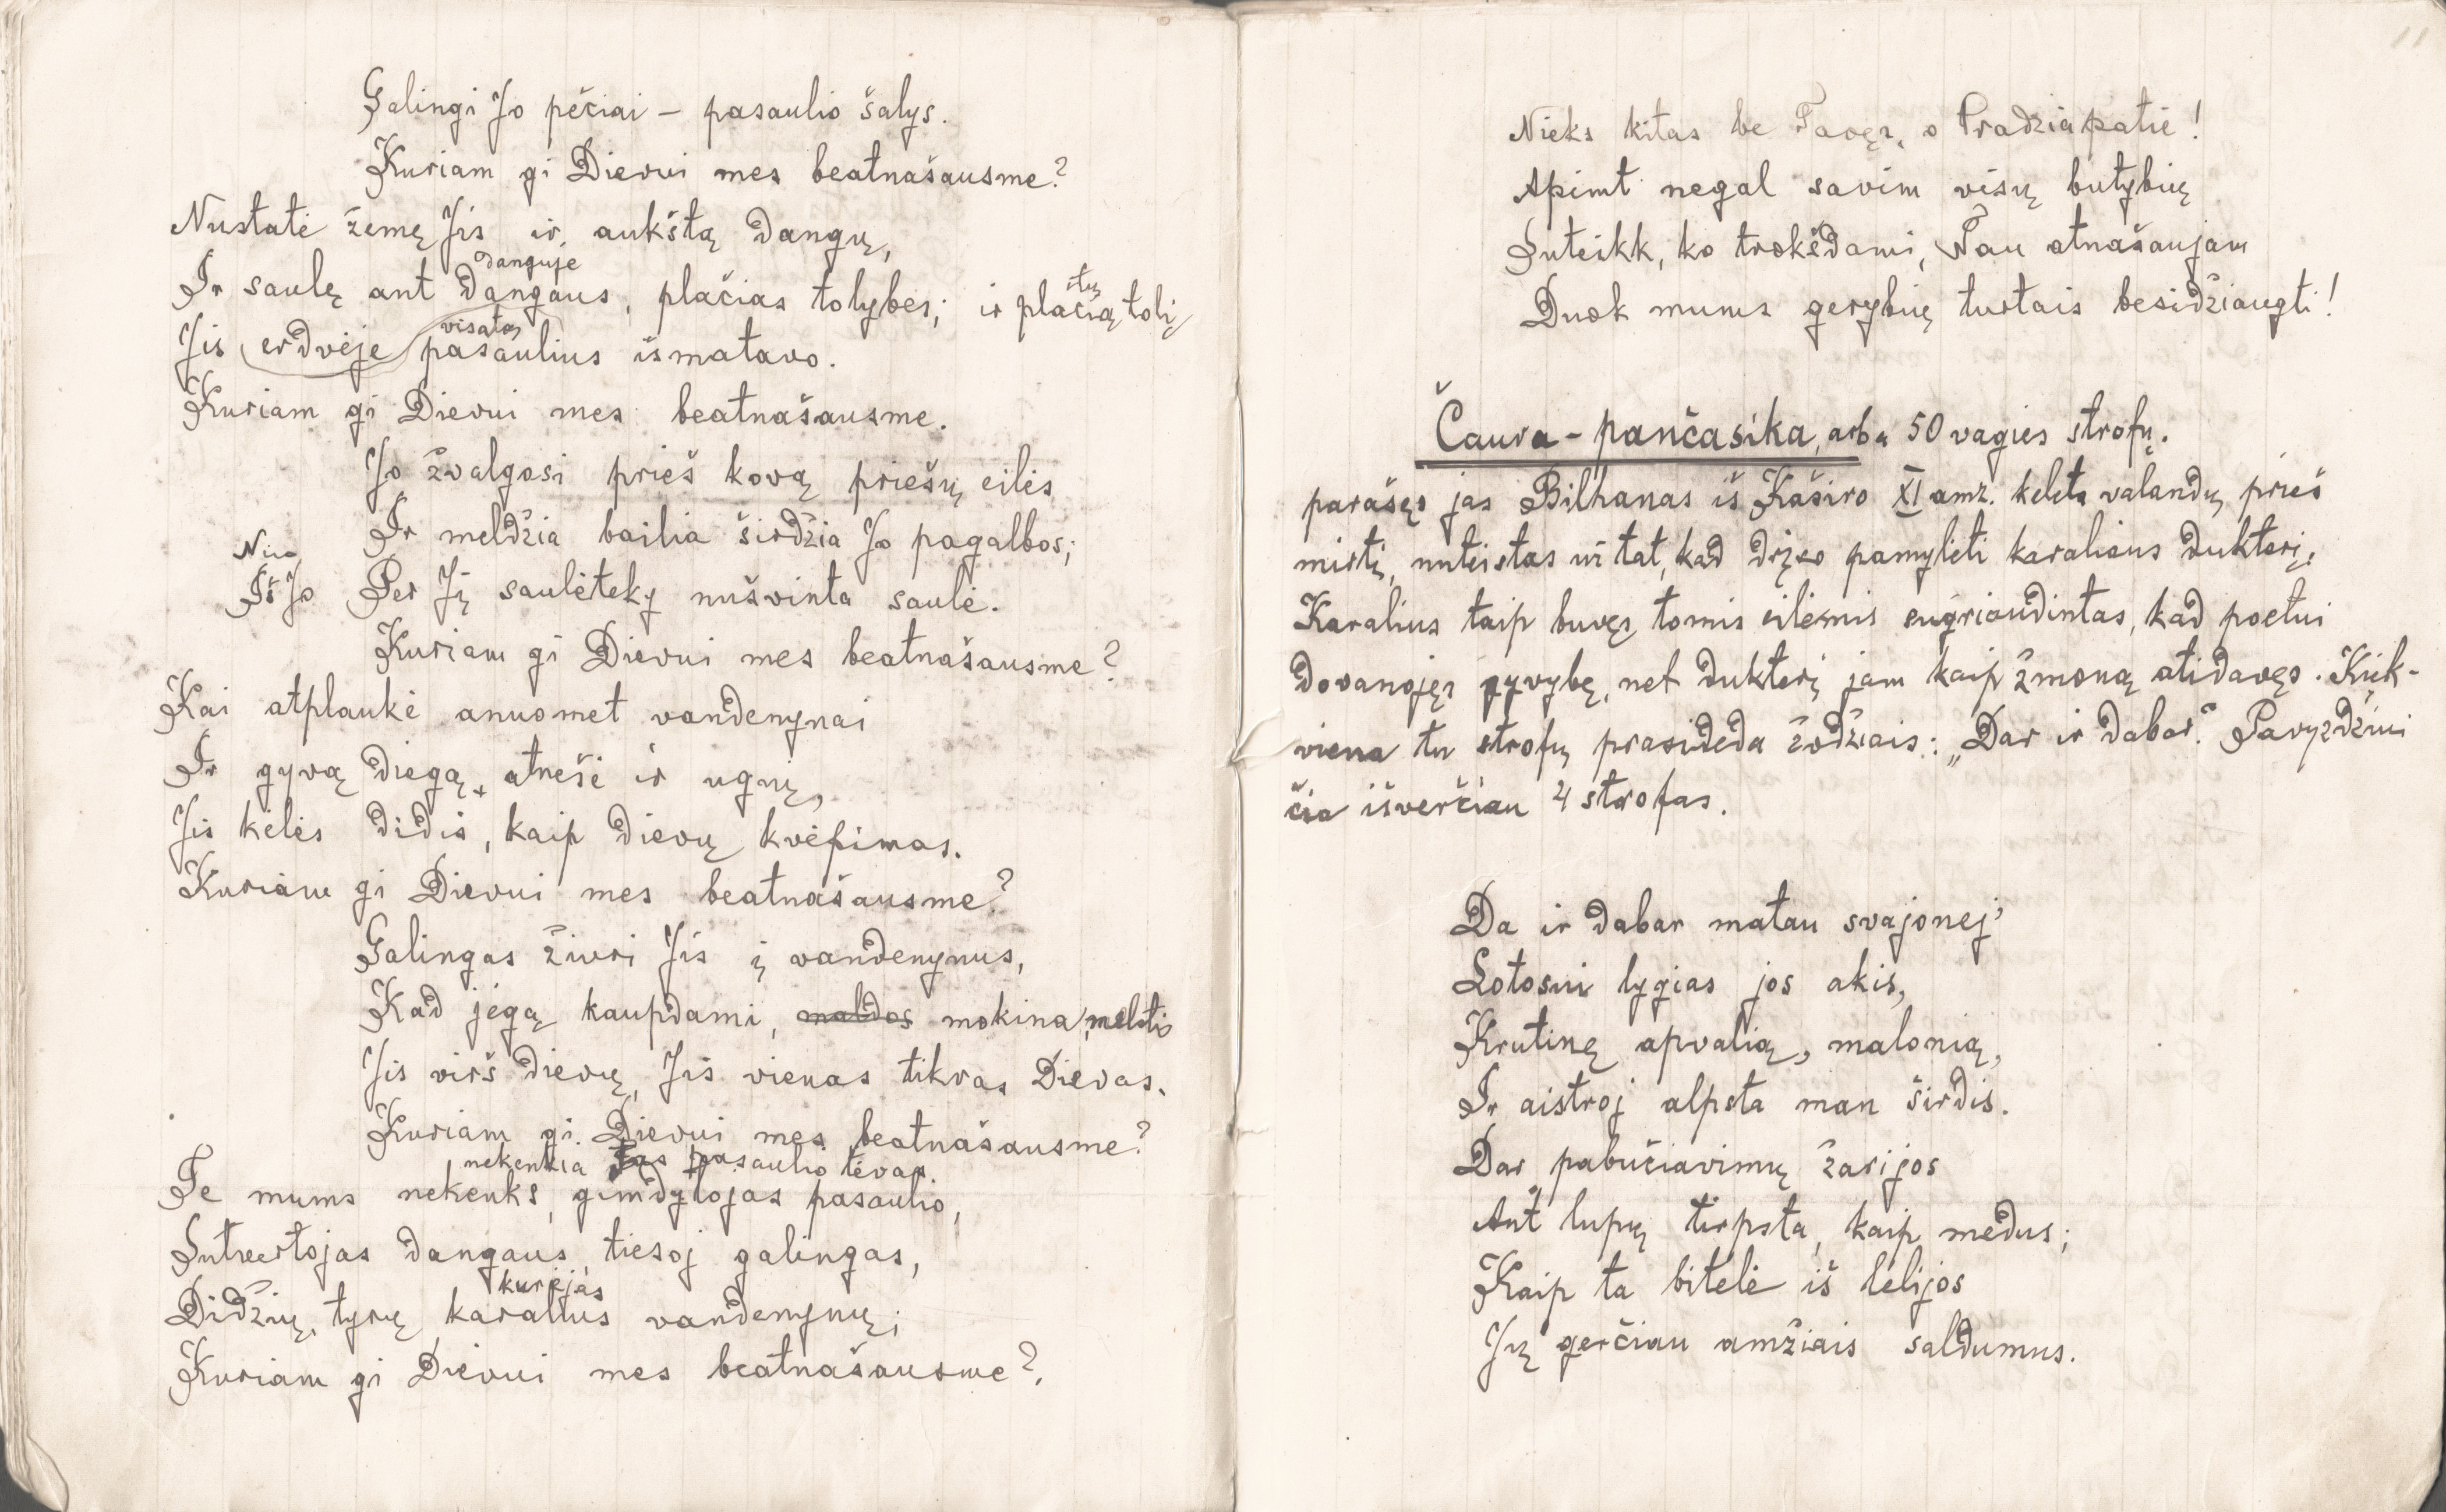 Galingi Jo pėčiai – pasaulio šalys.
Kuriam gi Dievui mes beatnašausme?
Nustatė žemę Jis ir aukštą dangų,
danguje
Ir saulę ant dangaus, plačias tolybes; ir plačią tolį
visatos
Jis erdvėje pasaulius išmatavo.
Kuriam gi Dievui mes beatnašausme.
Jo žvalgosi prieš kovą priešų eilės
Ir meldžia bailia širdžia Jo pagalbos;
Nuo
Iš Jo Per Jį saulėteky nušvinta saulė.
Kuriam gi Dievui mes beatnašausme?
Kai atplaukė anuomet vandenynai
Ir gyvą diegą atnešė ir ugnį,
Jis kėlės didis, kaip dievų kvėpimas.
Kuriam gi Dievui mes beatnašausme?
Galingas žiuri Jis į vandenynus,
Kad jėgą kaupdami, maldos mokina melstis
Jis virš dievų, Jis vienas tikras Dievas.
Kuriam gi Dievui mes beatnašausme?
nekenkia pasaulio tėvas.
Te mums nekenks, gimdytojas pasaulio,
Sutvertojas dangaus, tiesoj galingas,
kurėjas
Didžių, tyrų karalius vandenynų;
Kuriam gi Dievui mes beatnašausme?
11
Nieks kitas be Tavęs, o Pradžiapatie!
Apimt negal savim visų butybių
Suteikk, ko trokšdami, Tau atnašaujam
Duok mums gerybių turtais besidžiaugti!
Čaura-pančasika, arba 50 vagies strofų.
parašęs jas Bilhanas iš Kaširo XI amž. keleta valandų prieš
mirtį, nuteistas už tat, kad drįso pamylėti karaliaus dukterį.
Karalius taip buvęs tomis eilėmis sugriaudintas, kad poetui
dovanojęs gyvybę, net dukterį jam kaip žmoną atidavęs. Kiek-
viena tu strofų prasideda žodžiais: „Dar ir dabar". Pavyzdžiui
čia išverčiau 4 strofas.
Da ir dabar matau svajonej'
Lotosui lygias jos akis,
Krutinę apvalią, malonią,
Ir aistroj alpsta man širdis.
Dar pabučiavimų žarijos
Ant lupų tirpsta, kaip medus;
Kaip ta bitelė iš lelijos
Jų gerčiau amžiais saldumus.